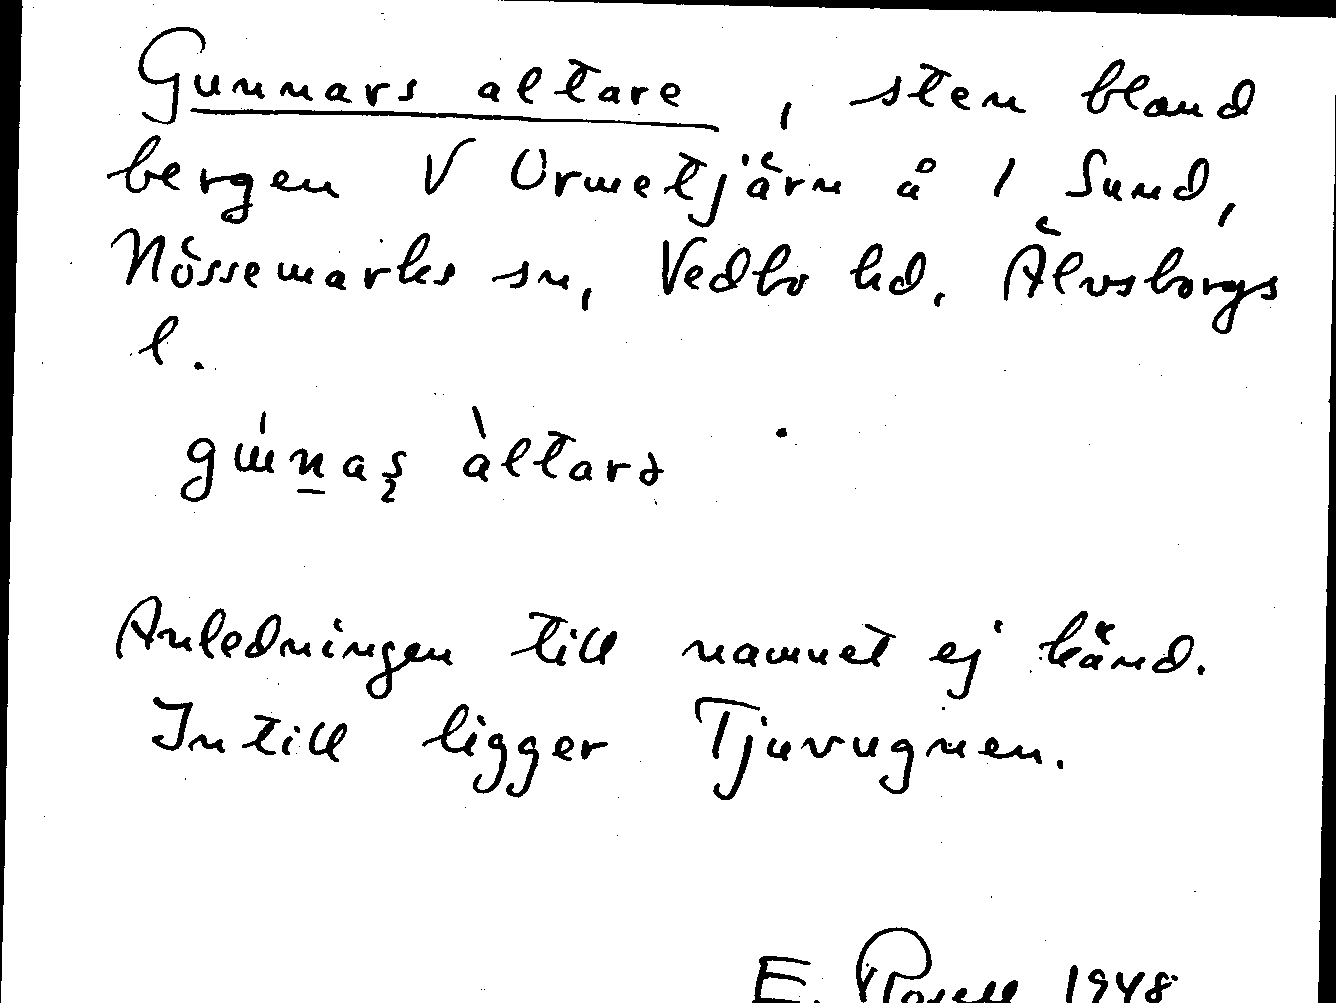 Gunnars altare, sten bland
bergen V Urmetjärn å 1 Sund,
Nössemarks sn, Vedbo hd, Älvsborgs
l.
altarə
Anledningen till namnet ej känd.
Intill ligger Tjuvugnen.
E. Rosell 1948